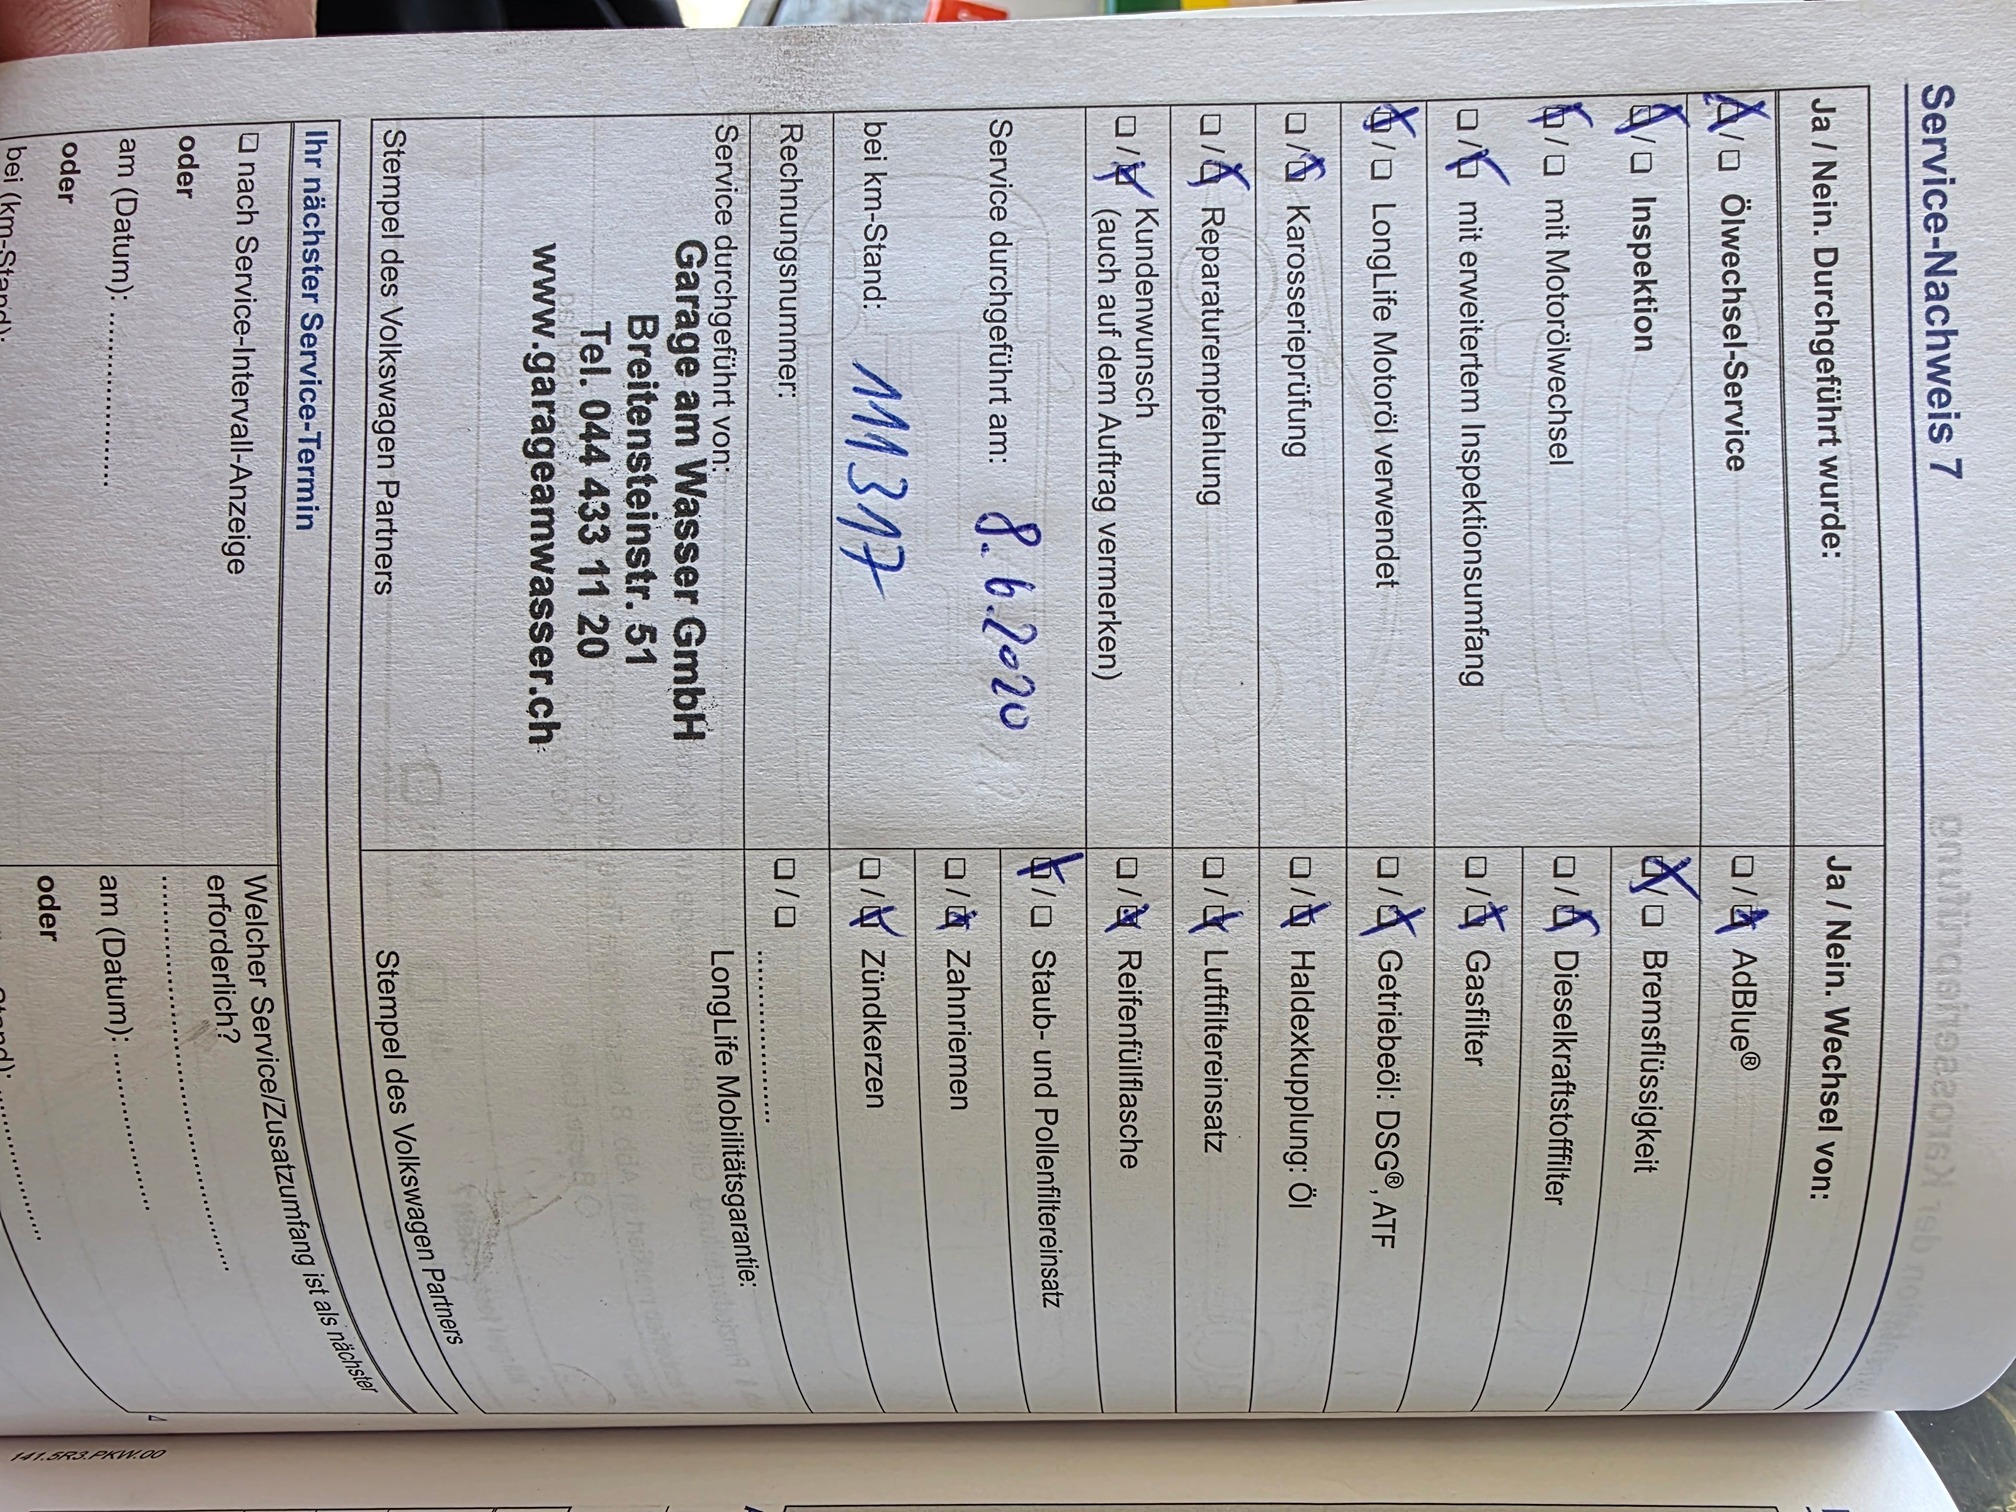 Service-Nachweis 7
Ja / Nein. Durchgeführt wurde:
☒/☐ Ölwechsel-Service
☒/☐ Inspektion
☒/☐ mit Motorölwechsel
☐/☒ mit erweitertem Inspektionsumfang
☒/☐ LongLife Motoröl verwendet
☐/☒ Karosserieprüfung
☐/☒ Reparaturempfehlung
☐/☒ Kundenwunsch
(auch auf dem Auftrag vermerken)
Service durchgeführt am: 8.6.2020
bei km-Stand: 111317
Rechnungsnummer:
Service durchgeführt von:
Garage am Wasser GmbH
Breitensteinstr. 51
Tel. 044 433 11 20
www.garageamwasser.ch
Stempel des Volkswagen Partners
Ja / Nein. Wechsel von:
☐/☒ AdBlue®
☒/☐ Bremsflüssigkeit
☐/☒ Dieselkraftstofffilter
☐/☒ Gasfilter
☐/☒ Getriebeöl: DSG®, ATF
☐/☒ Haldexkupplung: Öl
☐/☒ Luftfiltereinsatz
☐/☒ Reifenfüllflasche
☒/☐ Staub- und Pollenfiltereinsatz
☐/☒ Zahnriemen
☐/☒ Zündkerzen
☐/☐ ....................
LongLife Mobilitätsgarantie:
Stempel des Volkswagen Partners
Ihr nächster Service-Termin
☐ nach Service-Intervall-Anzeige
oder
am (Datum): ....................
oder
bei (km-Stand):
Welcher Service/Zusatzumfang ist als nächster
erforderlich?
........................................
am (Datum): ....................
oder
141.5R3.PKW.00